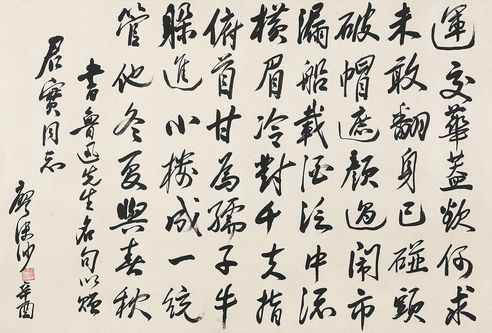 運交華蓋欲何求
未敢翻身已碰頭
破帽遮顏過鬧市
漏船載酒泛中流
橫眉冷對千夫指
俯首甘為孺子牛
躲進小樓成一統
管他冬夏與春秋
書魯迅先生名句以贈
君寶同志
廖沫沙 辛酉